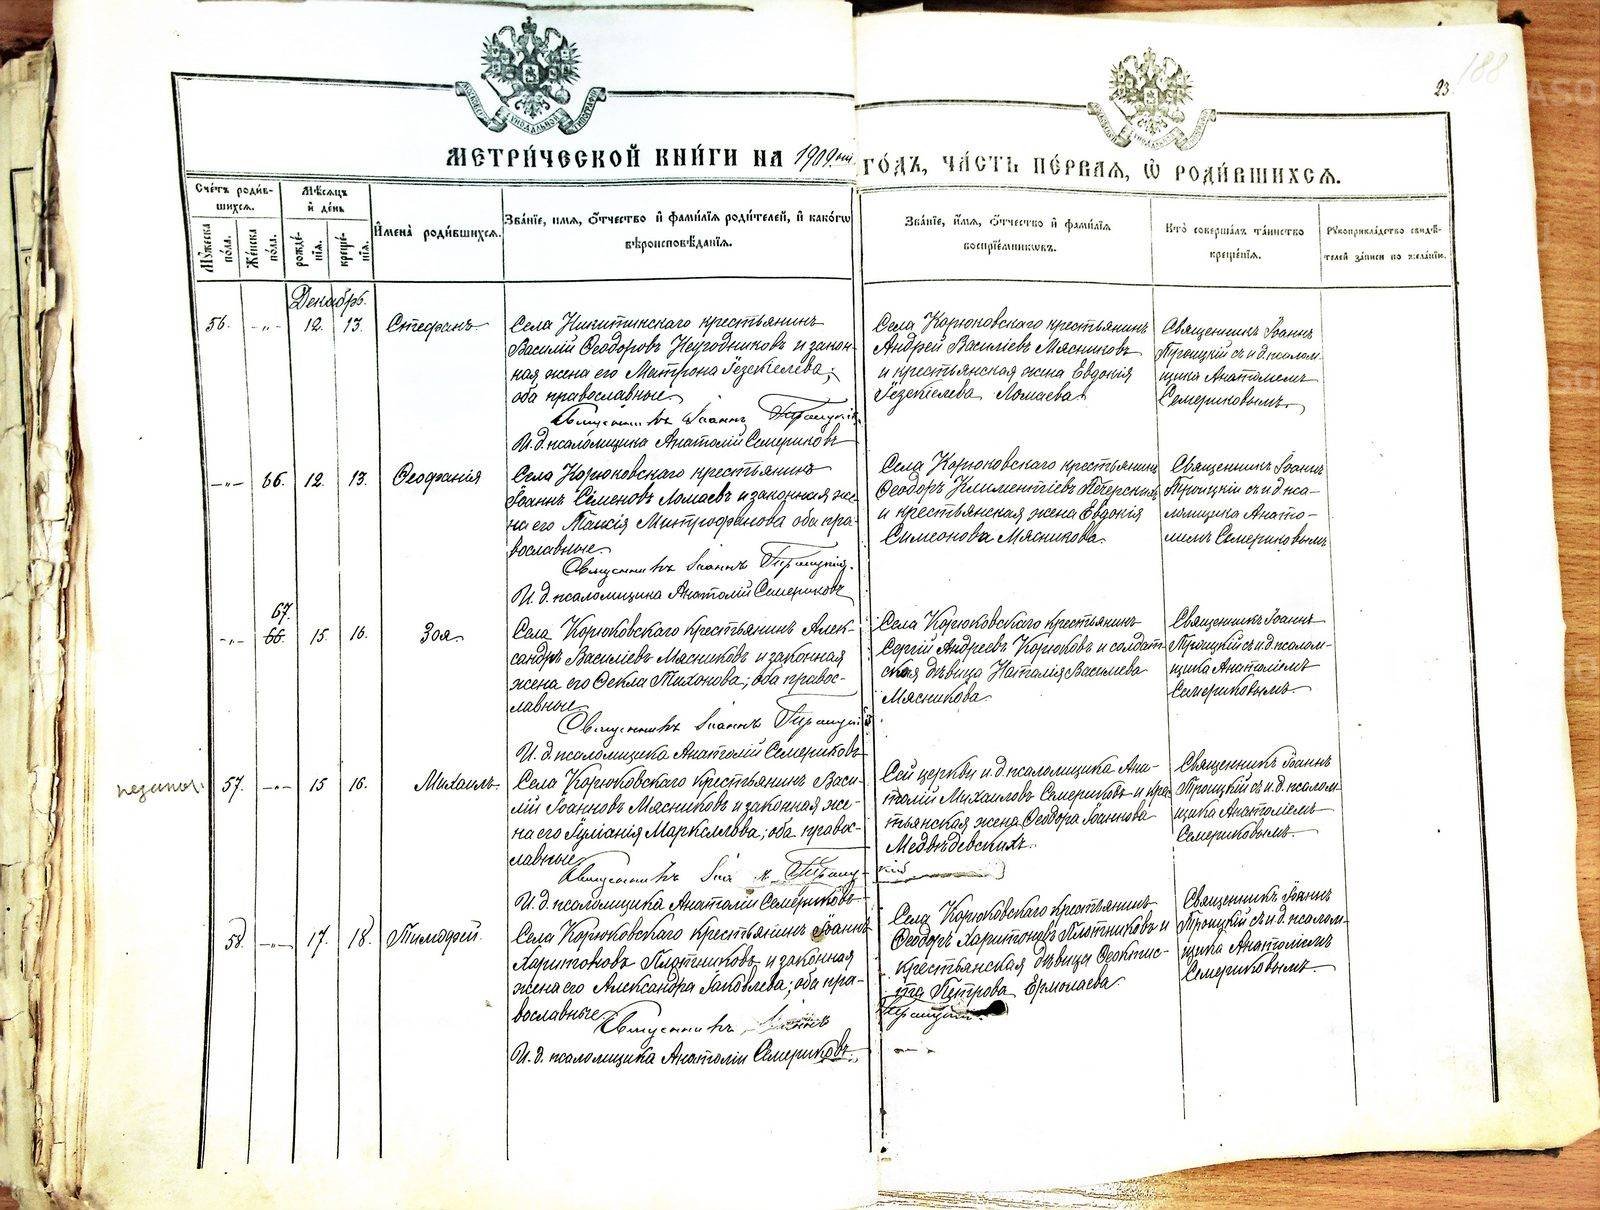 188
23.
МОСКОВСКОЙ СѴНОДАЛЬНОЙ ТИПОГРАФІИ
МЕТРИ́ЧЕСКОЙ КНИ́ГИ НА 1909ый ГО́ДЪ, ЧА́СТЬ ПЕ́РВАЯ, Ѡ РОДИ́ВШИХСЯ.
Сче́тъ роди́в-
шихся.
Му́жеска по́ла.
Же́нска по́ла.
Мѣ́сяцъ и де́нь
рожде́-
нія.
креще́-
нія.
Имена̀ роди́вшихся.
Зва́ніе, и́мя, о́тчество и фами́лія роди́телей, и како́гѡ
вѣроисповѣ́данія.
Зва́ніе, и́мя, о́тчество и фами́лія
воспріе́мникѡвъ.
Кто̀ соверша́лъ та́инство
креще́нія.
Рукоприкла́дство свидѣ́-
телей за́писи по жела́нію.
Декабрь.
56. -„- 12. 13. Стефанъ
Села Никитинскаго крестьянинъ
Василій Ѳеодоровъ Негодниковъ и закон-
ная жена его Матрона Іезекіелева;
оба православные.
Священникъ Іоаннъ Троицкій.
И. д. псаломщика Анатолій Семериковъ
Села Корюковскаго крестьянинъ
Андрей Василіевъ Мясниковъ
и крестьянская жена Евдокія
Іезекіелева Ломаева.
Священникъ Іоаннъ
Троицкій съ и.д. псалом-
щика Анатоліемъ
Семериковымъ.
-„- 66. 12. 13. Ѳеофанія
Села Корюковскаго крестьянинъ
Іоаннъ Семеновъ Ломаевъ и законная же-
на его Таисія Митрофанова оба пра-
вославные.
Священникъ Іоаннъ Троицкій.
И. д. псаломщика Анатолій Семериковъ
Села Корюковскаго крестьянинъ
Ѳеодоръ Климентіевъ Печерскихъ
и крестьянская жена Евдокія
Симеонова Мясникова.
Священникъ Іоаннъ
Троицкій съ и.д. пса-
ломщика Анато-
ліемъ Семериковымъ
67.
-„- 66. 15. 16. Зоя
Села Корюковскаго крестьянинъ Алек-
сандръ Василіевъ Мясниковъ и законная
жена его Ѳекла Тихонова; оба правос-
лавные
Священникъ Іоаннъ Троицкій
И. д. псаломщика Анатолій Семериковъ
Села Корюковскаго крестьянинъ
Сергій Андреевъ Корюковъ и солдат-
ская дѣвица Наталія Василіева
Мясникова.
Священникъ Іоаннъ
Троицкій съ и.д. псалом-
щика Анатоліемъ
Семериковымъ.
57. -„- 15 16. Михаилъ.
Села Корюковскаго крестьянинъ Васи-
лій Іоанновъ Мясниковъ и законная же-
на его Іуліанія Маркеллова; оба правос-
лавные
Священникъ Іоаннъ Троиц-
кій
И. д. псаломщика Анатолій Семериковъ
Сей церкви и.д. псаломщика Ана-
толій Михаиловъ Семериковъ и крес-
тьянская жена Ѳеодора Іоаннова
Медвѣдевскихъ.
Священникъ Іоаннъ
Троицкій съ и.д. псалом-
щика Анатоліемъ
Семериковымъ.
58. -„- 17. 18. Тимофей.
Села Корюковскаго крестьянинъ Іоаннъ
Харитоновъ Плотниковъ и законная
жена его Александра Іаковлева; оба пра-
вославные.
Священникъ Іоаннъ
Троицкій.
И. д. псаломщика Анатолій Семериковъ.
Села Корюковскаго крестьянинъ
Ѳеодоръ Харитоновъ Плотниковъ и
крестьянская дѣвица Ѳеоктис-
та Петрова Ермолаева.
Священникъ Іоаннъ
Троицкій съ и.д. псалом-
щика Анатоліемъ
Семериковымъ.